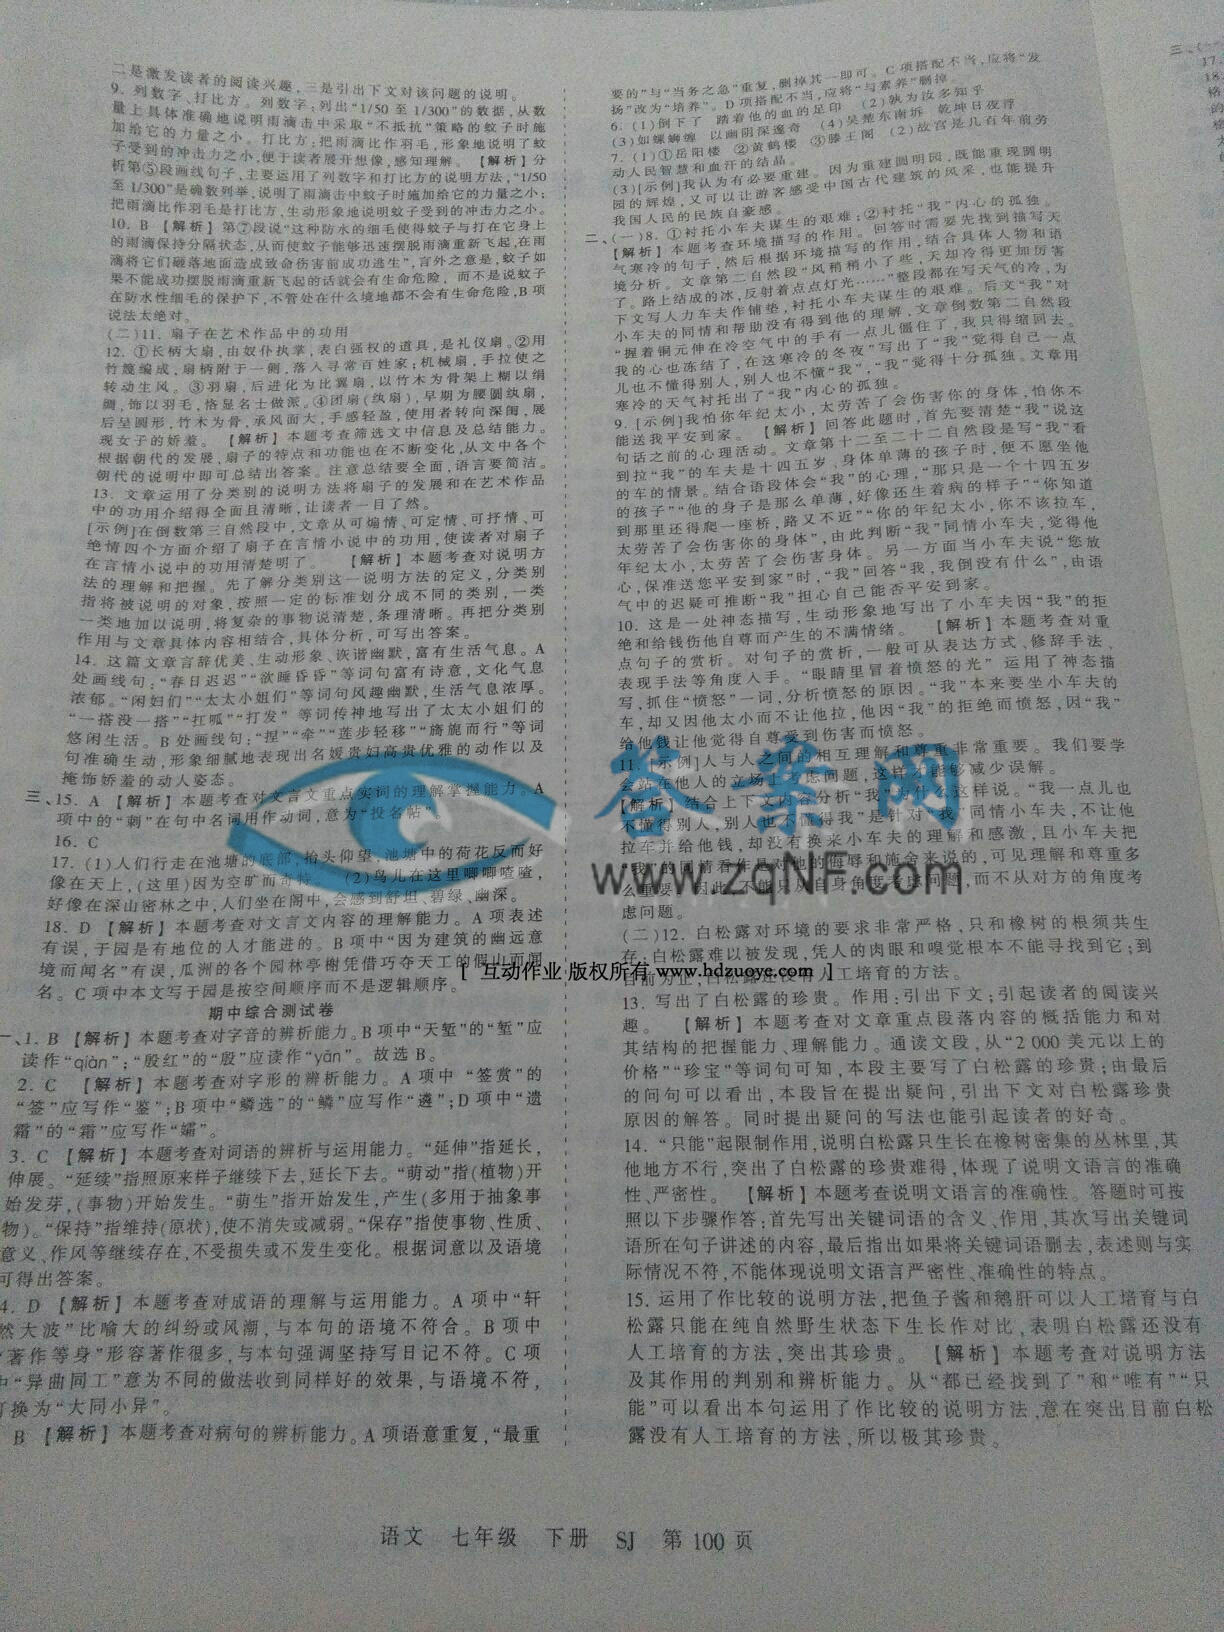 二是激发读者的阅读兴趣,三是引出下文对该问题的说明。
9. 列数字、打比方。列数字:列出“1/50 至 1/300”的数据,从数
量上具体准确地说明雨滴击中采取“不抵抗”策略的蚊子时施
加给它的力量之小。打比方:把雨滴比作羽毛,形象地说明了蚊
子受到的冲击力之小,便于读者展开想像,感知理解。【解析】分
析第⑤段画线句子,主要运用了列数字和打比方的说明方法,“1/50
至 1/300”是确数列举,说明了雨滴击中蚊子时施加给它的力量之小;
把雨滴比作羽毛是打比方,生动形象地说明蚊子受到的冲击力之小。
10. B 【解析】第⑦段说“这种防水的细毛使得蚊子与打在它身上
的雨滴保持分隔状态,从而使蚊子能够迅速摆脱雨滴重新飞起,在雨
滴将它们砸落地面造成致命伤害前成功逃生”,言外之意是,蚊子如
果不能成功摆脱雨滴重新飞起的话就会有生命危险,而不是说蚊子
在防水性细毛的保护下,不管处在什么境地都不会有生命危险,B 项
说法太绝对。
(二)11. 扇子在艺术作品中的功用
12. ①长柄大扇,由奴仆执掌,表白强权的道具,是礼仪扇。②用
竹篾编成,扇柄附于一侧,落入寻常百姓家;机械扇,手拉使之
转动生风。③羽扇,后进化为比翼扇,以竹木为骨架上糊以绢
绸,饰以羽毛,恪显名士做派。④团扇(纨扇),早期为腰圆纨扇,
后呈圆形,竹木为骨,承风面大,手感轻盈,使用者转向深闺,展
现女子的娇羞。【解析】本题考查筛选文中信息及总结能力。
根据朝代的发展、扇子的特点和功能也在不断变化,从文中各个
朝代的说明中即可总结出答案。注意总结要全面,语言要简洁。
13. 文章运用了分类别的说明方法将扇子的发展和在艺术作品
中的功用介绍得全面且清晰,让读者一目了然。
[示例]在倒数第三自然段中,文章从可煽情、可定情、可抒情、可
绝情四个方面介绍了扇子在言情小说中的功用,使读者对扇子
在言情小说中的功用清楚明了。【解析】本题考查对说明方
法的理解和把握。先了解分类别这一说明方法的定义,分类别
指将被说明的对象,按照一定的标准划分成不同的类别,一类
一类地加以说明,将复杂的事物说清楚,条理清晰。再把分类别
作用与文章具体内容相结合,具体分析,可写出答案。
14. 这篇文章言辞优美、生动形象、诙谐幽默,富有生活气息。A
处画线句:“春日迟迟”“欲睡昏昏”等词句富有诗意,文化气息
浓郁。“闲妇们”“太太小姐们”等词句风趣幽默,生活气息浓厚。
“一搭没一搭”“扛呱”“打发”等词传神地写出了太太小姐们的
悠闲生活。B 处画线句:“捏”“牵”“莲步轻移”“旖旎而行”等词
句准确生动,形象细腻地表现出名媛贵妇高贵优雅的动作以及
掩饰娇羞的动人姿态。
三、15. A 【解析】本题考查对文言文重点实词的理解掌握能力。A
项中的“刺”在句中名词用作动词,意为“投名帖”
16. C
17. (1)人们行走在池塘的底部,抬头仰望,池塘中的荷花反而好
像在天上,(这里)因为空旷而奇特。(2)鸟儿在这里唧唧喳喳,
好像在深山密林之中,人们坐在阁中,会感到舒坦、碧绿、幽深。
18. D 【解析】本题考查对文言文内容的理解能力。A 项表述
有误,于园是有地位的人才能进的。B 项中“因为建筑的幽远意
境而闻名”有误,瓜洲的各个园林亭榭凭借巧夺天工的假山而闻
名。C 项中本文写于园是按空间顺序而不是逻辑顺序。
期中综合测试卷
一、1. B 【解析】本题考查对字音的辨析能力。B 项中“天堑”的“堑”应
读作“qiàn”;“殷红”的“殷”应读作“yān”。故选 B。
2. C 【解析】本题考查对字形的辨析能力。A 项中“签赏”的
“签”应写作“鉴”;B 项中“鳞选”的“鳞”应写作“遴”;D 项中“遗
霜”的“霜”应写作“孀”。
3. C 【解析】本题考查对词语的辨析与运用能力。“延伸”指延长,
伸展。“延续”指照原来样子继续下去,延长下去。“萌动”指(植物)开
始发芽,(事物)开始发生。“萌生”指开始发生,产生(多用于抽象事
物)。“保持”指维持(原状),使不消失或减弱。“保存”指使事物、性质、
意义、作风等继续存在,不受损失或不发生变化。根据词意以及语境
可得出答案。
4. D 【解析】本题考查对成语的理解与运用能力。A 项中“轩
然大波”比喻大的纠纷或风潮,与本句的语境不符合。B 项中
“著作等身”形容著作很多,与本句强调坚持写日记不符。C 项
中“异曲同工”意为不同的做法收到同样好的效果,与语境不符,
可换为“大同小异”。
B 【解析】本题考查对病句的辨析能力。A 项语意重复,“最重
要的”与“当务之急”重复,删掉其一即可。C 项搭配不当,应将“发
扬”改为“培养”。D 项搭配不当,应将“与素养”删掉。
6. (1)倒下了 踏着他的血的足印 (2)孰为汝多知乎
(3)如螺蛳缠 以幽阴深邃奇 (4)吴楚东南坼 乾坤日夜浮
7. (1)①岳阳楼 ②黄鹤楼 ③滕王阁 (2)故宫是几百年前劳
动人民智慧和血汗的结晶。
(3)[示例]我认为有必要重建。因为重建圆明园,既能重现圆明
园的辉煌,又可以让游客感受中国古代建筑的风采,也能提升
我国人民的民族自豪感。
二、(一)8. ①衬托小车夫谋生的艰难;②衬托“我”内心的孤独。
【解析】本题考查环境描写的作用。回答时需要先找到描写天
气寒冷的句子,然后根据环境描写的作用,结合具体人物和语
境分析。文章第二自然段“风稍稍小了些,天却冷得更加厉害
了。路上结成的冰,反射着点点灯光……”整段都在写天气的冷,为
下文写人力车夫作铺垫,衬托小车夫谋生的艰难。后文“我”对
小车夫的同情和帮助没有得到他的理解,文章倒数第二自然段
“握着铜元伸在冷空气中的手有一点儿僵住了,我只得缩回去。
我的心也冻结了,在这寒冷的冬夜”写出了“我”觉得自己一点
儿也不懂得别人,别人也不懂“我”,“我”觉得十分孤独。文章用
寒冷的天气衬托出了“我”内心的孤独。
9. [示例]我怕你年纪太小,太劳苦了会伤害你的身体,怕你不
能送我平安到家。【解析】回答此题时,首先要清楚“我”说这
句话之前的心理活动。文章第十二至二十二自然段是写“我”看
到拉“我”的车夫是十四五岁、身体单薄的孩子时,便不愿坐他
的车的情景。结合语段体会“我”的心理,“那只是一个十四五岁
的孩子”“他的身子是那么单薄,好像还生着病的样子”“你知道
到那里还得爬一座桥,路又不近”“你的年纪太小,你不该拉车,
太劳苦了会伤害你的身体”,由此判断“我”同情小车夫,觉得他
年纪太小,太劳苦了会伤害身体。另一方面当小车夫说“您放
心,保准送您平安到家”时,“我”回答“我,我倒没有什么”,由语
气中的迟疑可推断“我”担心自己能否平安到家。
10. 这是一处神态描写,生动形象地写出了小车夫因“我”的拒
绝和给钱伤他自尊而产生的不满情绪。【解析】本题考查对重
点句子的赏析。对句子的赏析,一般可从表达方式、修辞手法、
表现手法等角度入手。“眼睛里冒着愤怒的光”运用了神态描
写,抓住“愤怒”一词,分析愤怒的原因。“我”本来要坐小车夫的
车,却又因他太小而不让他拉,他因“我”的拒绝而愤怒,因“我”
给他钱让他觉得自尊受到伤害而愤怒。
11. [示例]人与人之间的相互理解和尊重非常重要。我们要学
会站在他人的立场上考虑问题,这样才能够减少误解。
【解析】结合上下文内容分析“我”为什么这样说。“我一点儿也
不懂得别人,别人也不懂得我”是针对“我”同情小车夫,不让他
拉车并给他钱,却没有换来小车夫的理解和感激,且小车夫把
“我”的同情看作是对他的侮辱和施舍来说的,可见理解和尊重多
么重要。因此,不能只从自身角度考虑问题,而不从对方的角度考
虑问题。
(二)12. 白松露对环境的要求非常严格,只和橡树的根须共生
存;白松露难以被发现,凭人的肉眼和嗅觉根本不能寻找到它;到
目前为止,白松露还没有人工培育的方法。
13. 写出了白松露的珍贵。作用:引出下文;引起读者的阅读兴
趣。【解析】本题考查对文章重点段落内容的概括能力和对
其结构的把握能力、理解能力。通读文段,从“2 000 美元以上的
价格”“珍宝”等词句可知,本段主要写了白松露的珍贵;由最后
的问句可以看出,本段旨在提出疑问,引出下文对白松露珍贵
原因的解答。同时提出疑问的写法也能引起读者的好奇。
14. “只能”起限制作用,说明白松露只生长在橡树密集的丛林里,其
他地方不行,突出了白松露的珍贵难得,体现了说明文语言的准确
性、严密性。【解析】本题考查说明文语言的准确性。答题时可按
照以下步骤作答:首先写出关键词语的含义、作用,其次写出关键词
语所在句子讲述的内容,最后指出如果将关键词语删去,表述则与实
际情况不符,不能体现说明文语言严密性、准确性的特点。
15. 运用了作比较的说明方法,把鱼子酱和鹅肝可以人工培育与白
松露只能在纯自然野生状态下生长作对比,表明白松露还没有
人工培育的方法,突出其珍贵。【解析】本题考查对说明方法
及其作用的判别和辨析能力。从“都已经找到了”和“唯有”“只
能”可以看出本句运用了作比较的说明方法,意在突出目前白松
露没有人工培育的方法,所以极其珍贵。
三、(一)
17.
18.
答案网
www.zqNF.com
[ 互动作业 版权所有 www.hdzuoye.com ]
语文 七年级 下册 SJ 第 100 页